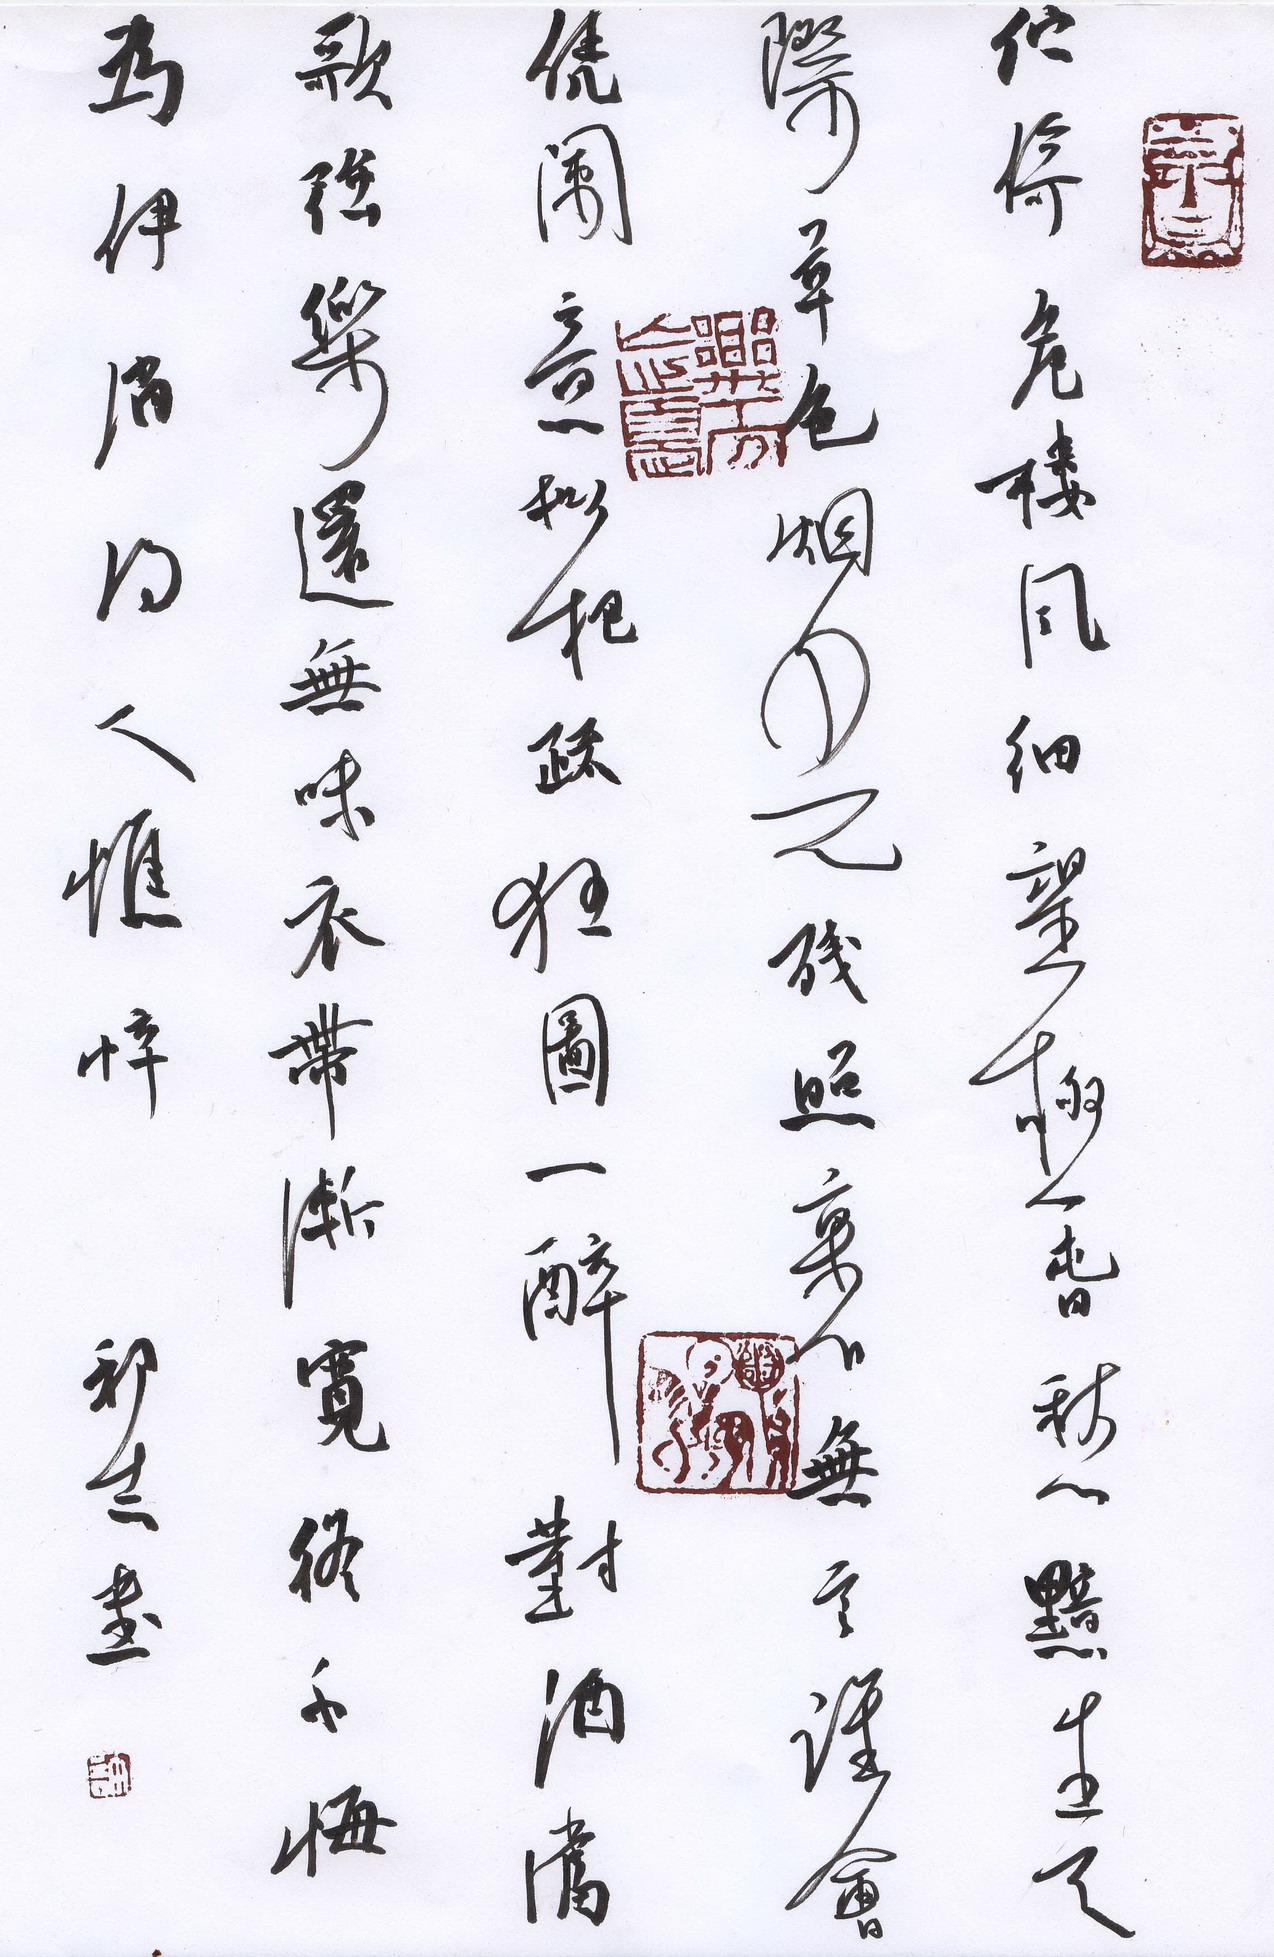 伫倚危楼风细望極春愁黯生天
際草色烟光残照裏無言誰會
凭闌意拟把疎狂圖一醉對酒當
歌强樂還無味衣帶漸寬終不悔
為伊消得人憔悴 書